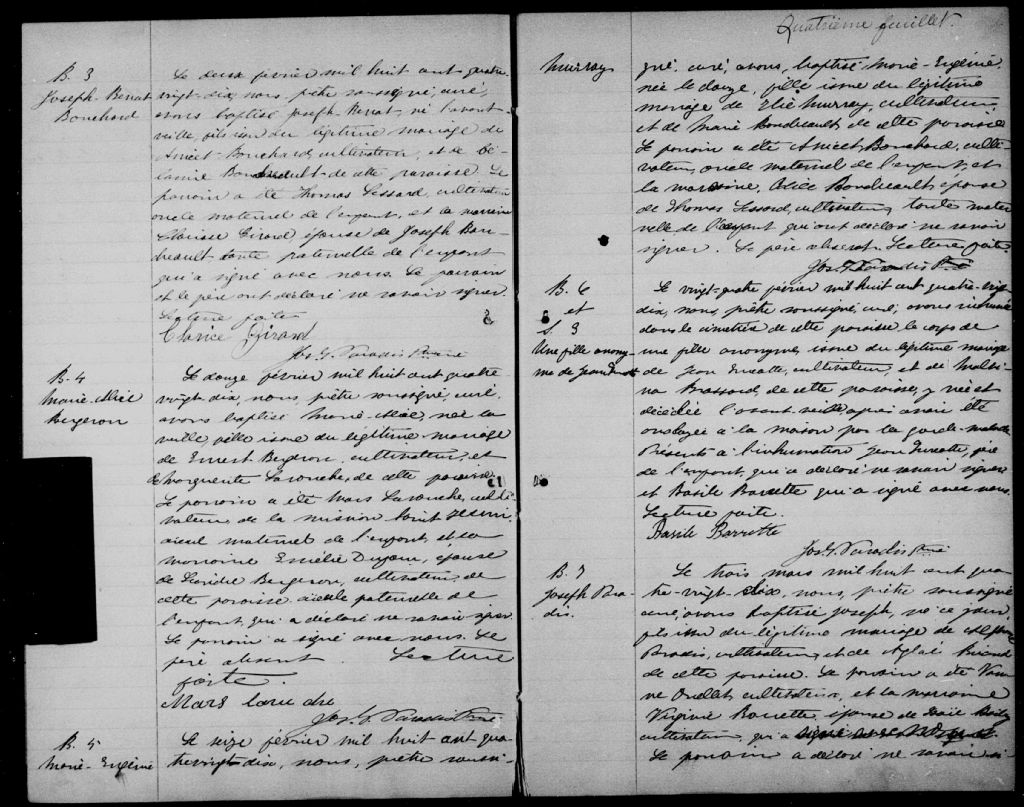 B. 3
Joseph Renat
Bouchard
Le deux février mil huit cent quatre
vingt-dix, nous, prêtre soussigné, curé,
avons baptisé Joseph-Renat, né l'avant-
veille, fils issu du légitime mariage de
Anicet Bouchard, cultivateur, et de
Boudreault de cette paroisse. Le
parrain a été Thomas Lessard, cultivateur
oncle maternel de l'enfant, et la marraine
Clarisse Girard épouse de Joseph Bou-
dreault tante paternelle de l'enfant
qui a signé avec nous. Le parrain
et le père ont déclaré ne savoir signer.
Lecture faite
Clarice Girard
Jos. G. Paradis Ptre
B. 4
Marie-Alice
Bergeron
Le douze février mil huit cent quatre-
vingt-dix, nous, prêtre soussigné, curé,
avons baptisé Marie-Alice, née la
veille, fille issue du légitime mariage
de Ernest Bergeron, cultivateur, et
de Marguerite Larouche, de cette paroisse.
Le parrain a été Mars Larouche, culti-
vateur de la mission Saint
aieul maternel de l'enfant et la
marraine Emélie épouse
de Bergeron, cultivateur, de
cette paroisse aieule paternelle de
l'enfant, qui a déclaré ne savoir signer.
Le parrain a signé avec nous. Le
père absent. Lecture
faite.
Mars
Jos. G. Paradis Ptre
B. 5
Marie-Eugénie
Le seize février mil huit cent qua-
tre vingt dix, nous, prêtre soussi-
Quatrième feuillet.
Murray
gné, curé, avons, baptisé Marie-Eugénie
née le douze, fille issue du légitime
mariage de Elie Murray, cultivateur,
et de Marie Boudreault, de cette paroisse
Le parrain a été Anicet Bouchard, culti-
vateur, oncle maternel de l'enfant, et
la marraine, Boudreault, épouse
de Thomas Lessard, cultivateur, tante mater-
nelle de l'enfant qui ont déclaré ne savoir
signer. Le père absent. Lecture faite.
Jos. G. Paradis Ptre
B. 6
et
S. 3
Une fille anony-
me de Jean
Le vingt-quatre février mil huit cent quatre-vingt
dix, nous, prêtre soussigné, curé, avons inhumé
dans le cimetière de cette paroisse le corps de
une fille anonyme, issue du légitime mariage
de Jean cultivateur, et de
Brassard, de cette paroisse, y née et
décédée l'avant-veille après avoir été
ondoyée à la maison par la garde-malade
Présents à l'inhumation Jean père
de l'enfant, qui a déclaré ne savoir signer
et Basile Barrette qui a signé avec nous.
Lecture faite.
Basile Barrette
Jos. G. Paradis Ptre
B. 7
Joseph Pra-
dis.
Le trois mars mil huit cent qua-
tre-vingt-dix, nous, prêtre soussigné
curé, avons baptisé Joseph, né ce jour
fils issu du légitime mariage de
Pradis, cultivateur, et de Aglaé
de cette paroisse. Le parrain a été
Ouellet, cultivateur, et la marraine
Virginie Barrette épouse de
cultivateur, qui a
Le parrain a déclaré ne savoir si-